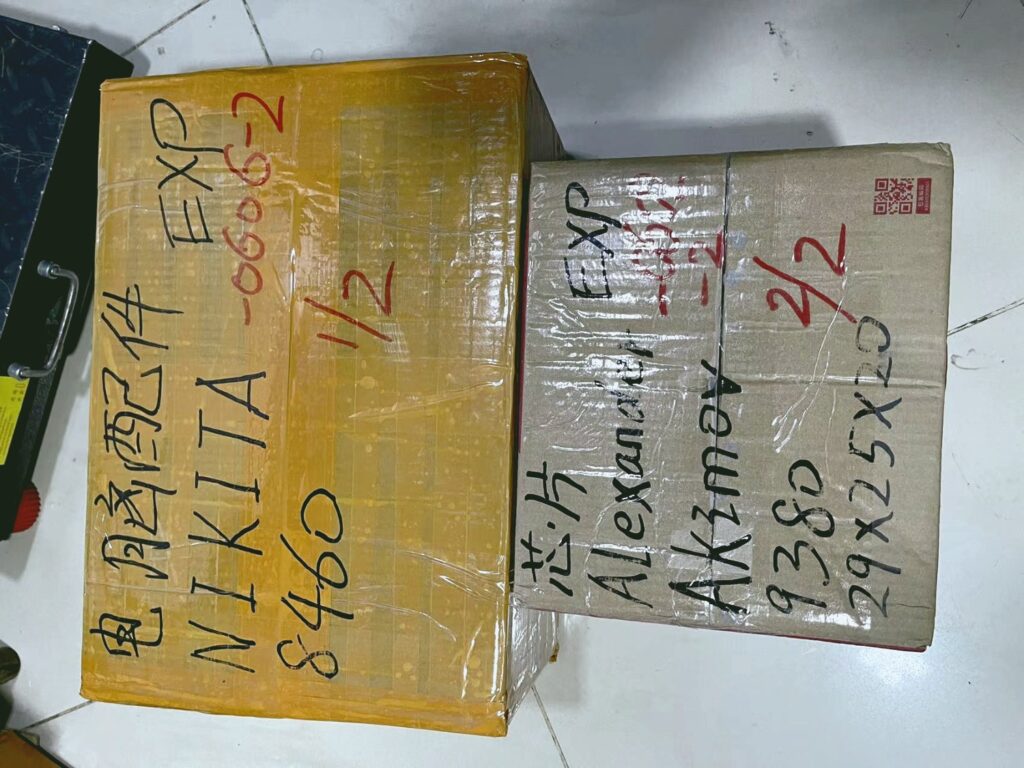 电脑配件 EXP
NIKITA -0606-2
8460 1/2
芯片 EXP
Alexander
Akimov -2
9380 2/2
29x25x20